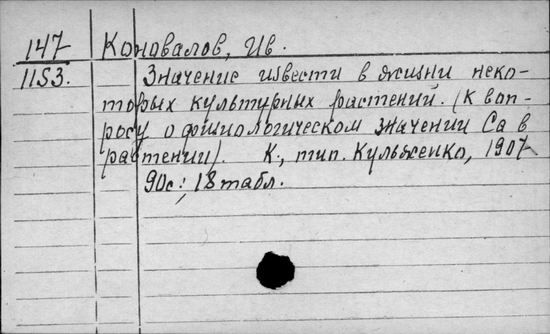 147 Коновалов, Ив.
1153. Значение извести в жизни неко-
торых культурных растений. (К воп-
росу о физиологическом значении Ca в
растении). К., тип. Кульженко, 1907
90с.; 18 табл.